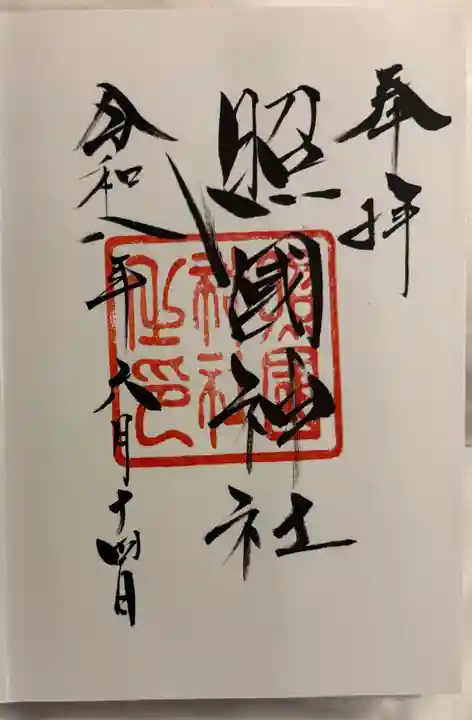 奉拝
照國神社
令和八年六月十四日
照國
神社
之印